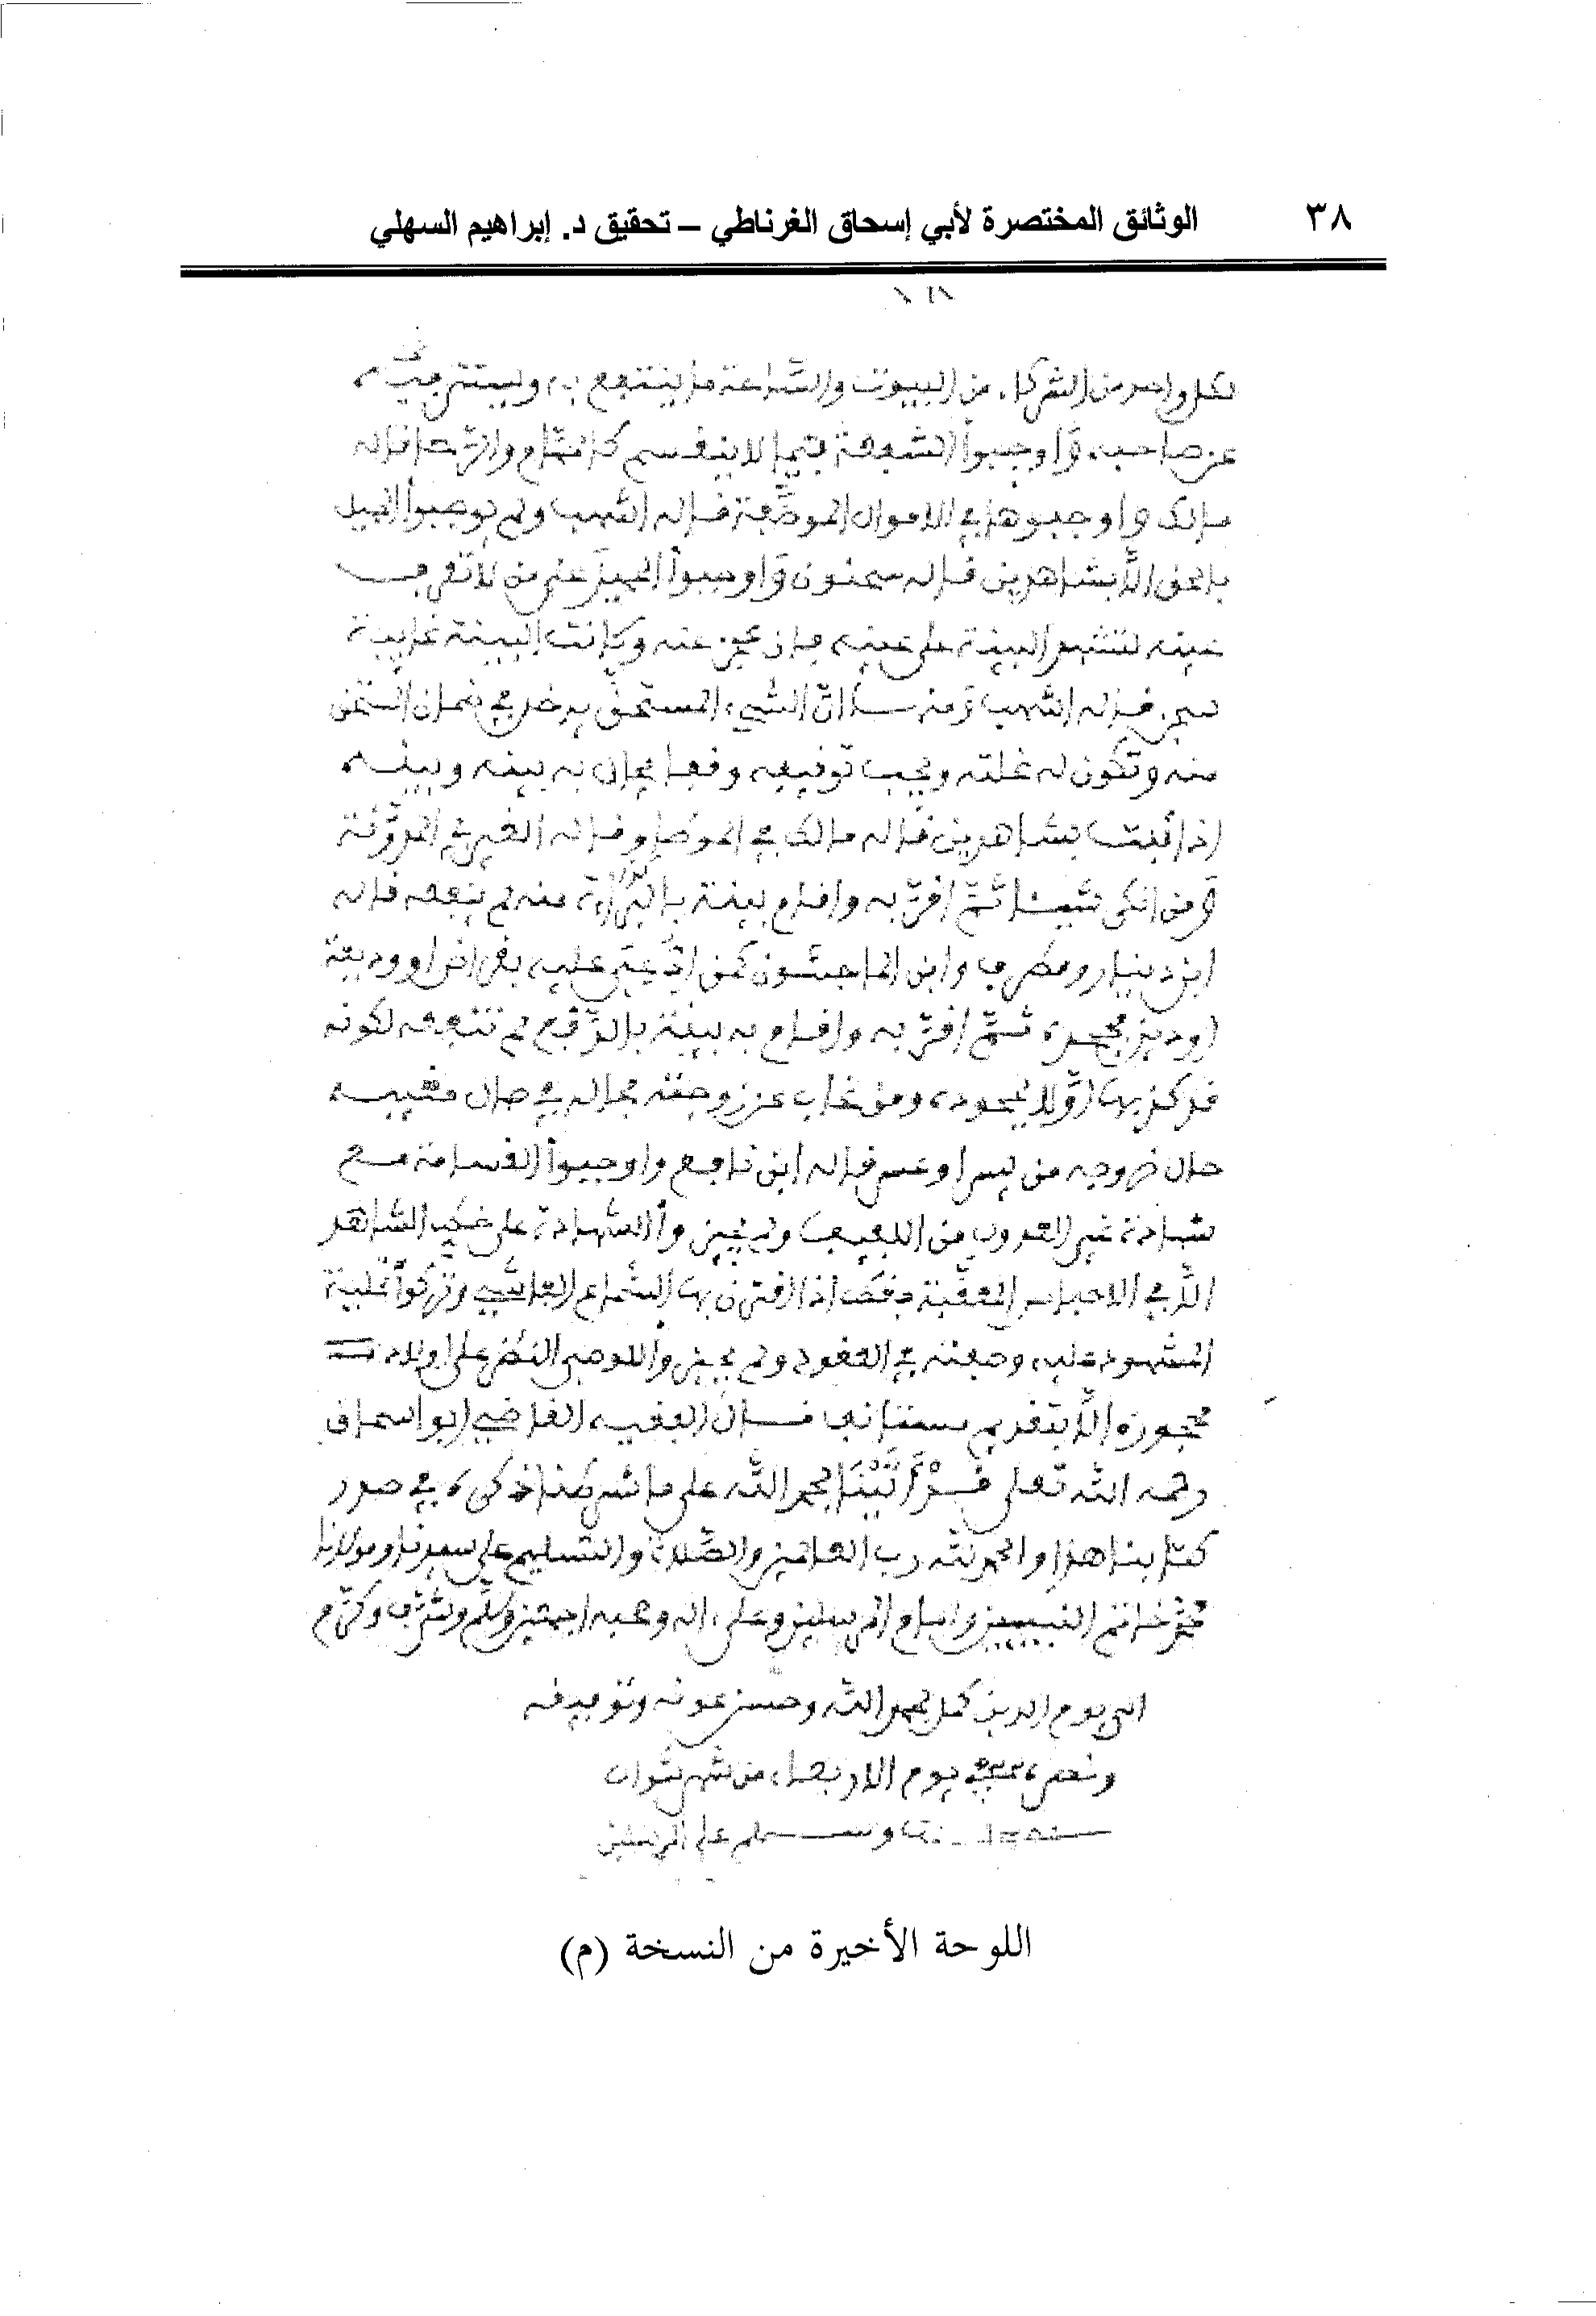 ٣٨ الوثائق المختصرة لأبي إسحاق الغرناطي – تحقيق د. إبراهيم السهلي
لكل واحد من الشركاء من البيوت والساحة ما ينتفع به ويستتر فيه
عن صاحبه وأوجبوا الشفعة فيما لا ينقسم كالحمام والرحا قاله
مالك وأوجبوها في الاموال الموظفة قاله اشهب ولم يوجبوا الحيل
بالحق الا بشاهدين قاله سحنون وأوجبوا
عينه لتشهد البينة على عينه فإن عجز عنه وكانت البينة غايبة
سجن قاله اشهب ومنها ان الشيء المستحق يدخل في ضمان المستحق
منه وتكون له غلته ويجب توقيفه وقفا يحال به بينه وبينه
اذا ثبت بشاهدين قاله مالك في الموطإ وقاله الغير في المدونة
ومن انكر شيئا ثم اقر به واقام بينة بالبراءة منه لم ينفعه قاله
ابن دينار ومطرف وابن الماجشون كمن ادعي عليه بقراض او وديعة
او دين فجحده ثم اقر به واقام به بينة بالدفع لم تنفعه لكونه
قد كذبها اولا بجحوده ومن غاب عن زوجته فحاله في حال مغيبه
حال خروجه من يسر او عسر قاله ابن نافع واوجبوا القسامة مع
شهادة غير العدول من اللفيف ولم يجيزوا الشهادة على خط الشاهد
الا في الاحباس المعقبة فقط اذا اقترن بها السماع الفاشي وتركوا تحلية
المشهود عليه وصفته في العقود ولم يجيزوا للوصي النظر على اولاد
محجوره الا بتقديم مستانف قال الفقيه القاضي ابو اسحاق
رحمه الله تعالى قد أتينا بحمد الله على ما شرطنا ذكره في صدر
كتابنا هذا والحمد لله رب العالمين والصلاة والتسليم على سيدنا ومولانا
محمد خاتم النبيين وامام المرسلين وعلى اله وصحبه اجمعين وسلم وشرف وكرم
الى يوم الدين كمل بحمد الله وحسن عونه وتوفيقه
يوم الاربعاء من شهر شوال
على المرسلين
اللوحة الأخيرة من النسخة (م)